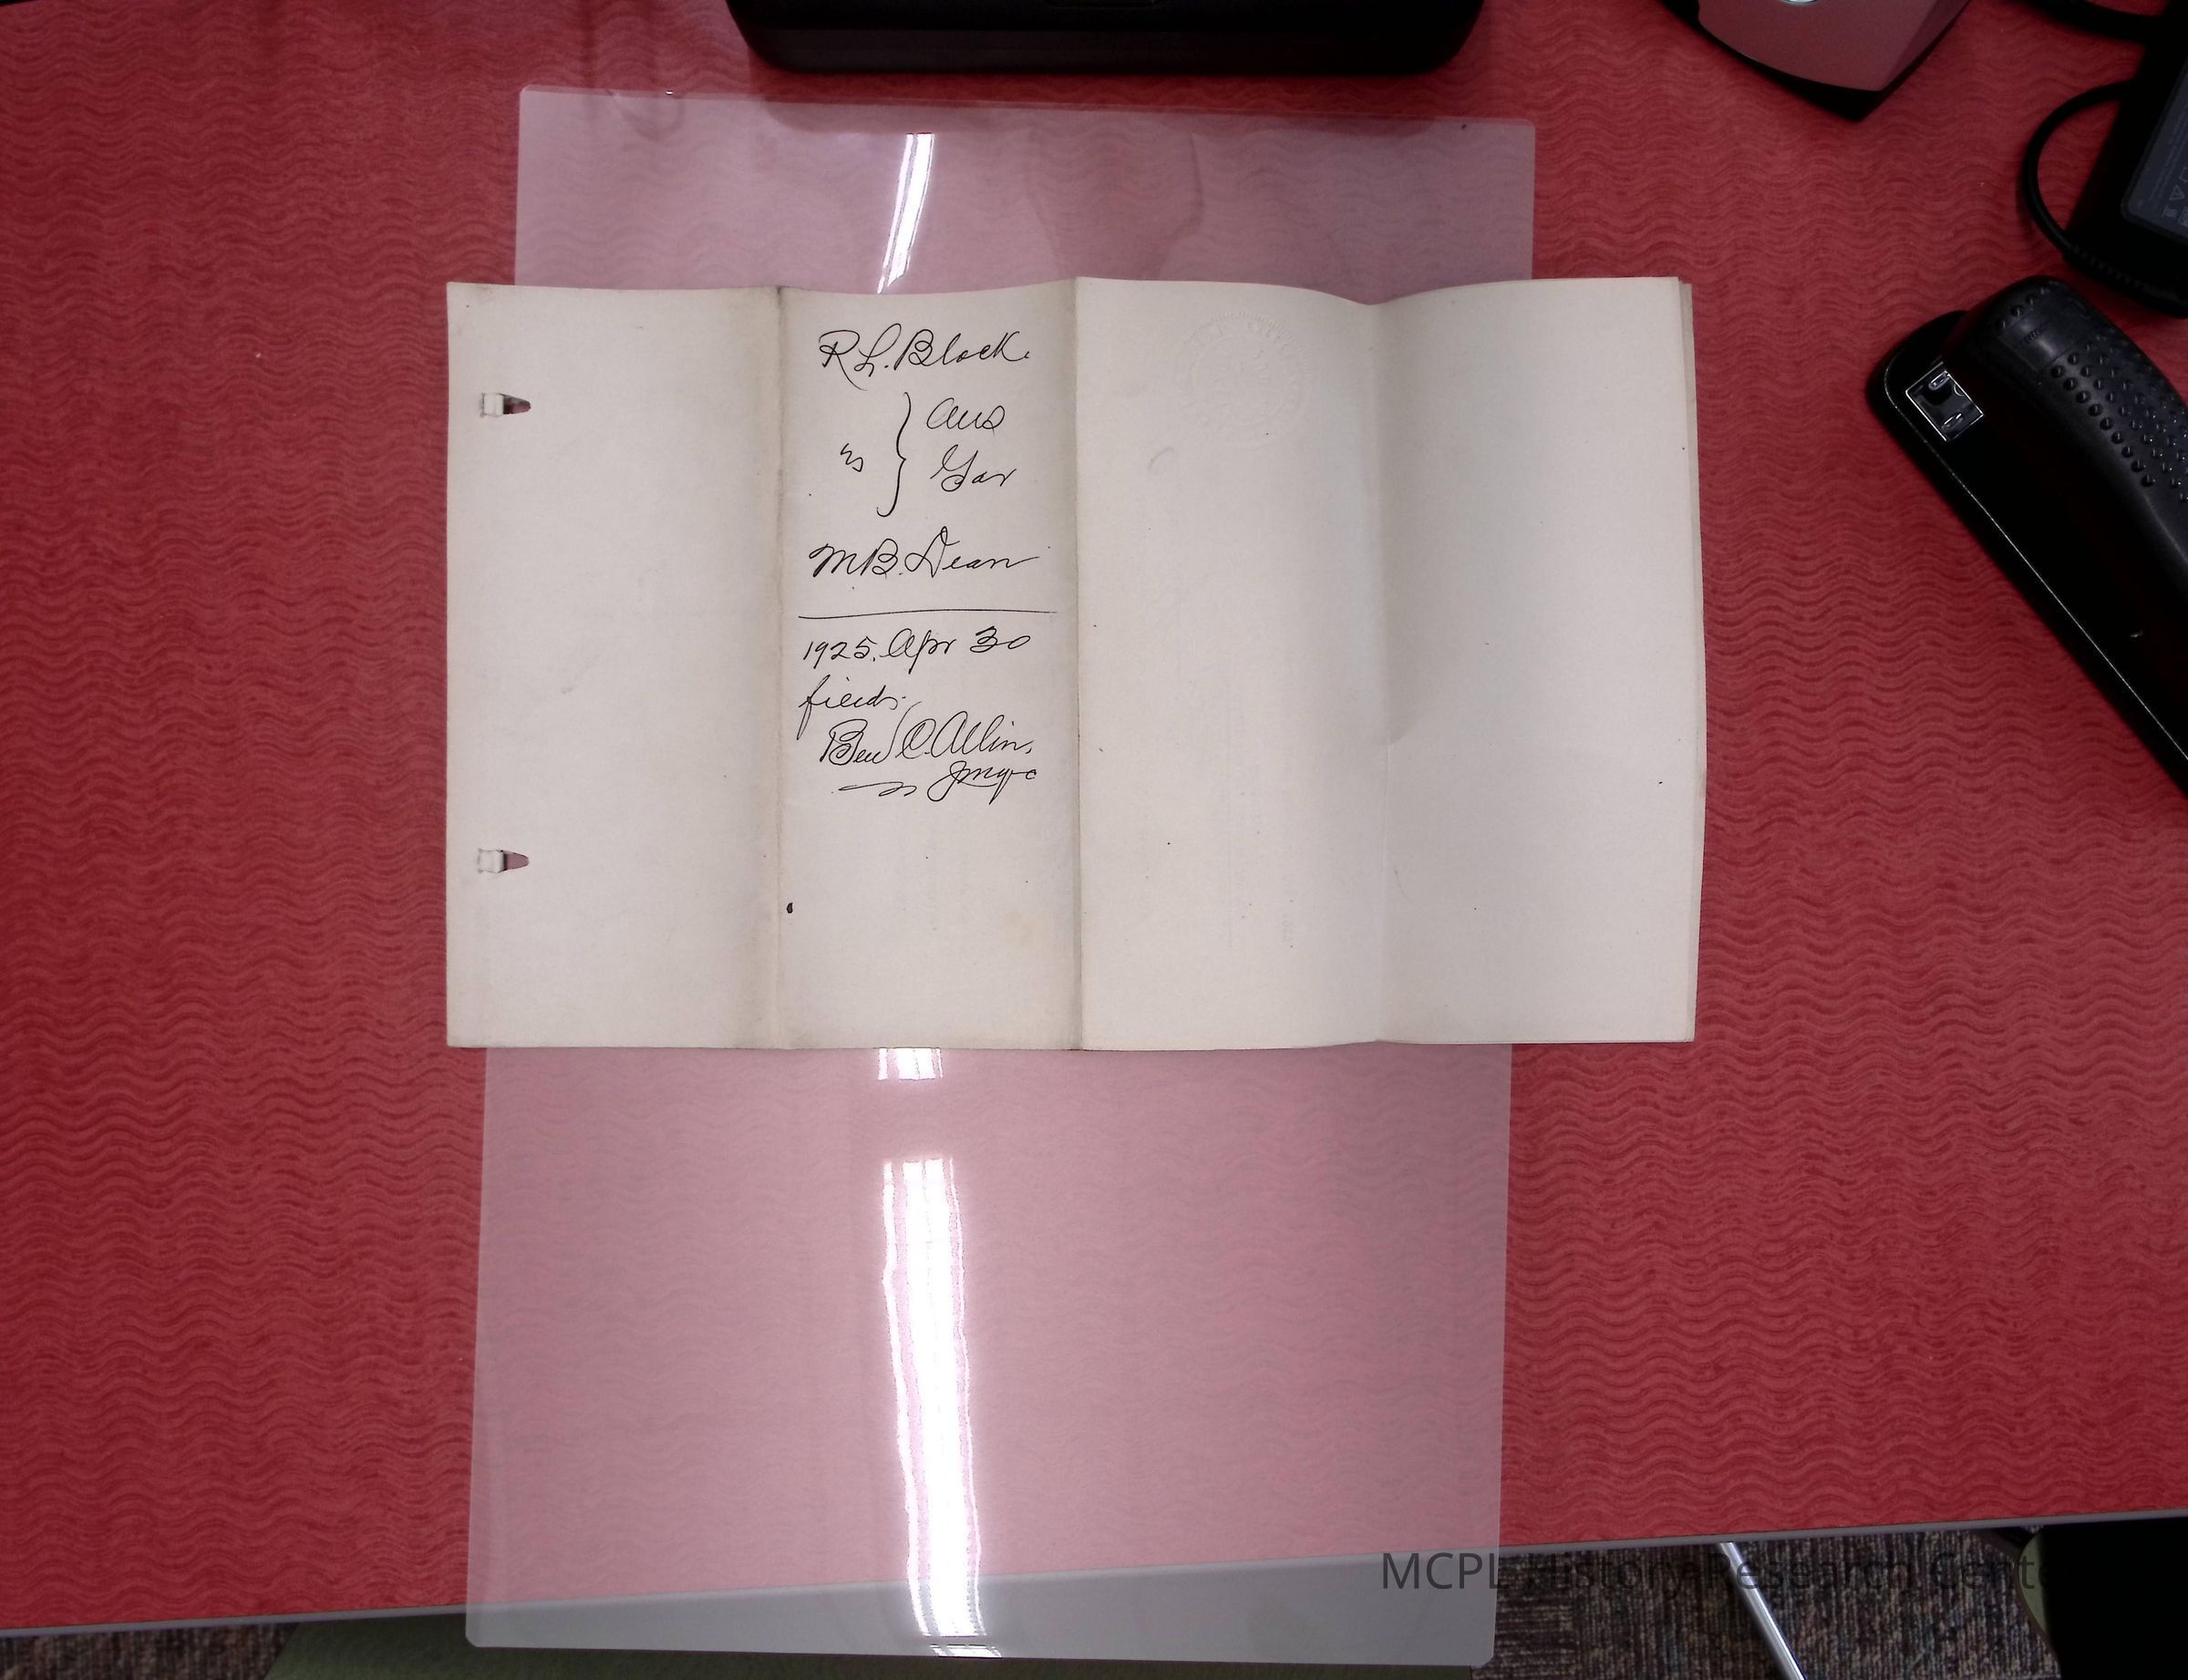 R L. Black.
vs } Ans
Gar
M.B. Dean
1925. Apr 30
filed.
Ben C. Allin,
MCPL History Research Cent